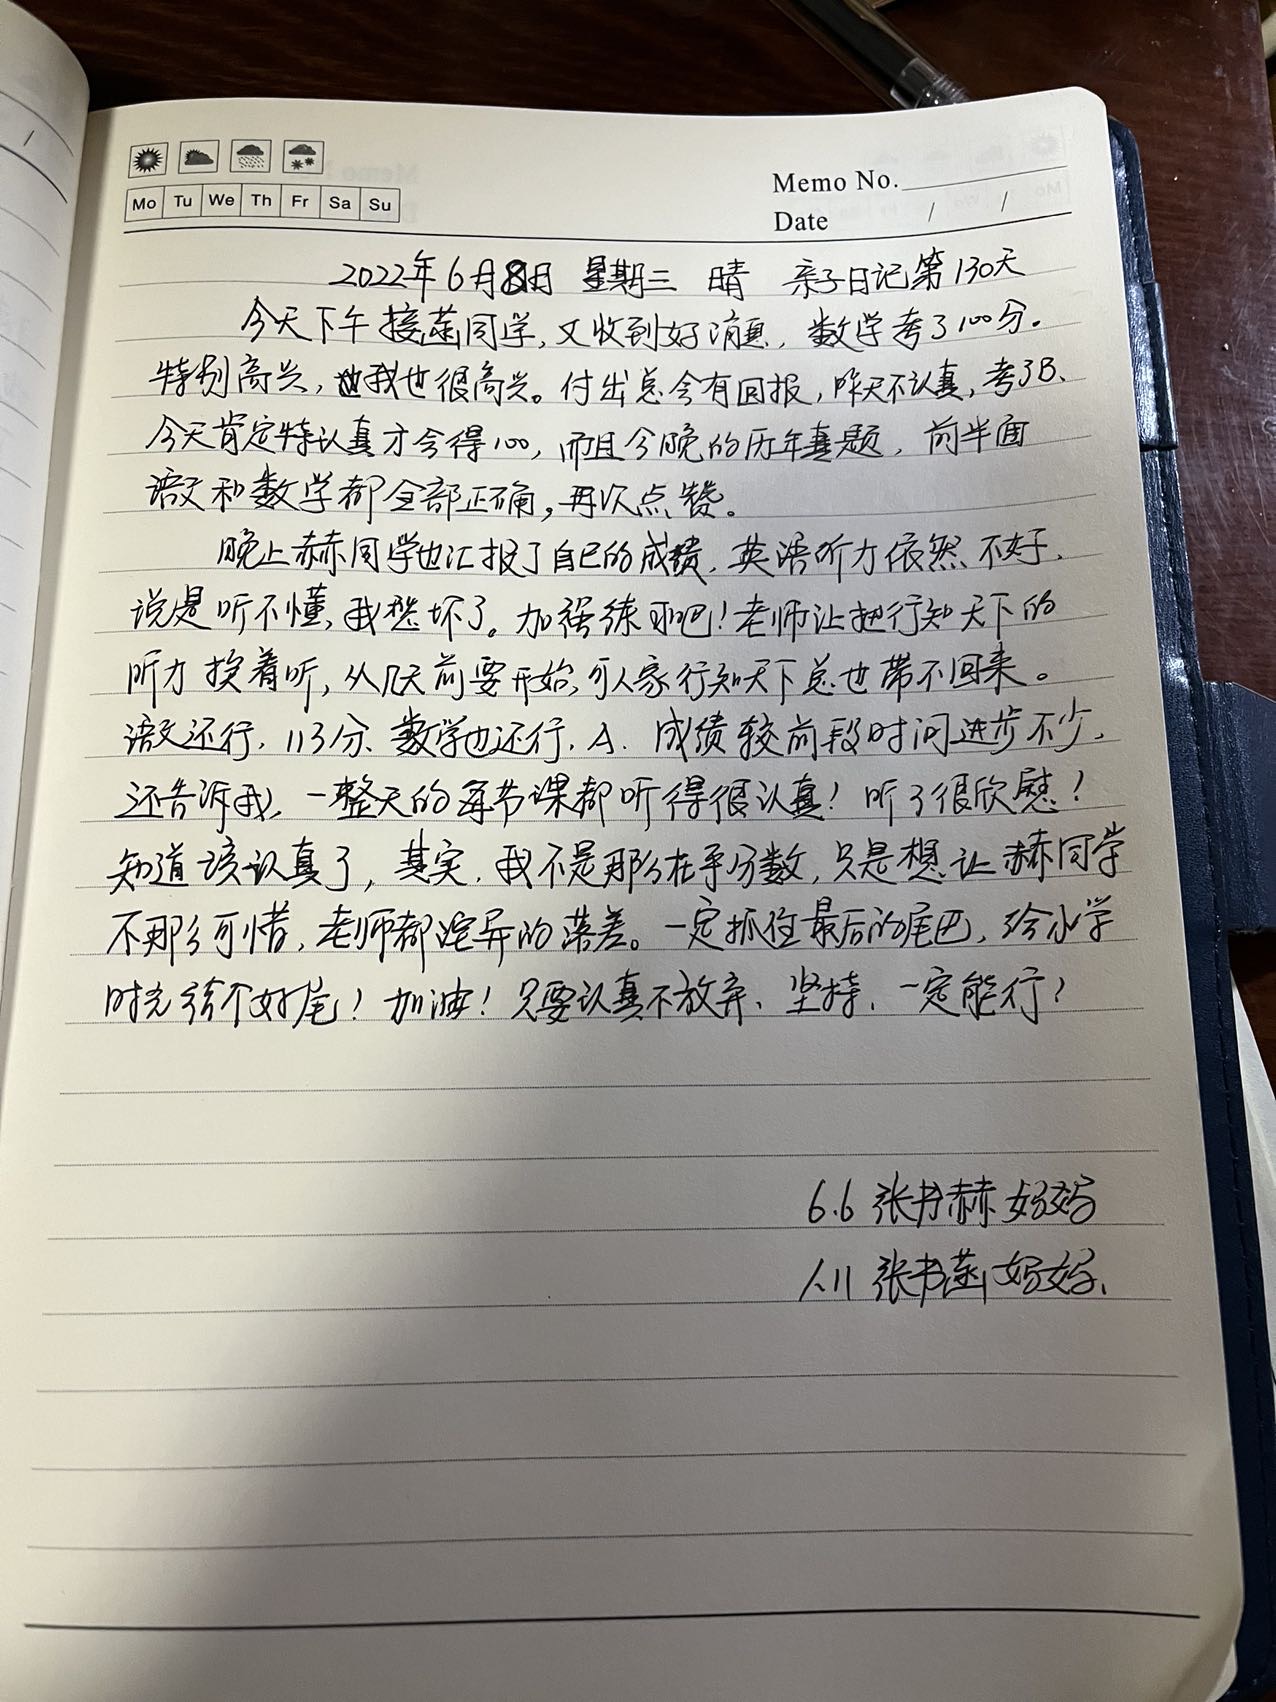 Mo Tu We Th Fr Sa Su
Memo No.
Date / /
2022年6月8日 星期三 晴 亲子日记第130天
今天下午接菡同学,又收到好消息,数学考了100分.
特别高兴,我也很高兴。付出总会有回报,昨天不认真,考了B、
今天肯定特认真才会得100,而且今晚的历年真题,前半面
语文和数学都全部正确,再次点赞。
晚上赫同学也汇报了自己的成绩,英语听力依然不好,
说是听不懂,我愁坏了。加强练习吧!老师让把行知天下的
听力挨着听,从几天前要开始,可人家行知天下总也带不回来。
语文还行,113分、数学也还行,A.成绩较前段时间进步不少,
还告诉我,一整天的每节课都听得很认真!听了很欣慰!
知道该认真了,其实,我不是那么在乎分数,只是想让赫同学
不那么可惜,老师都诧异的落差。一定抓住最后的尾巴,给小学
时光给个好尾!加油!只要认真不放弃、坚持,一定能行!
6.6 张书赫妈妈
张书菡妈妈.